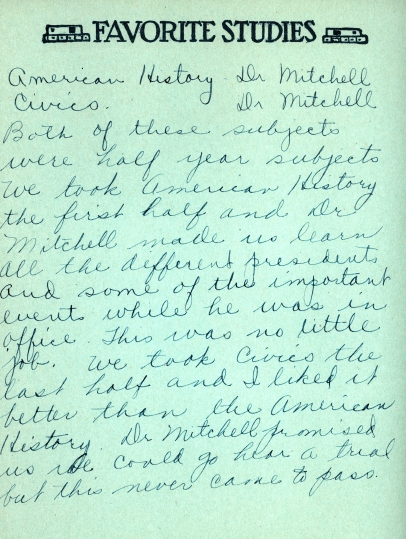 FAVORITE STUDIES
American History Dr Mitchell
Civics. Dr Mitchell
Both of these subjects
were half year subjects
We took American History
the first half and Dr
Mitchell made us learn
all the different presidents
and some of the important
events while he was in
office. This was no little
job. We took Civics the
last half and I liked it
better than the American
History. Dr Mitchell promised
us we could go hear a trial
but this never came to pass.